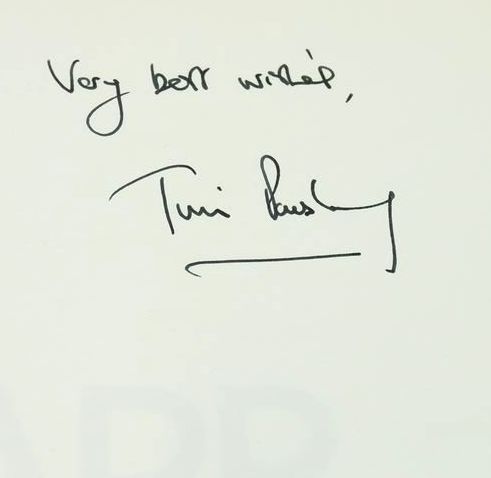 Very best wishes,
Tim